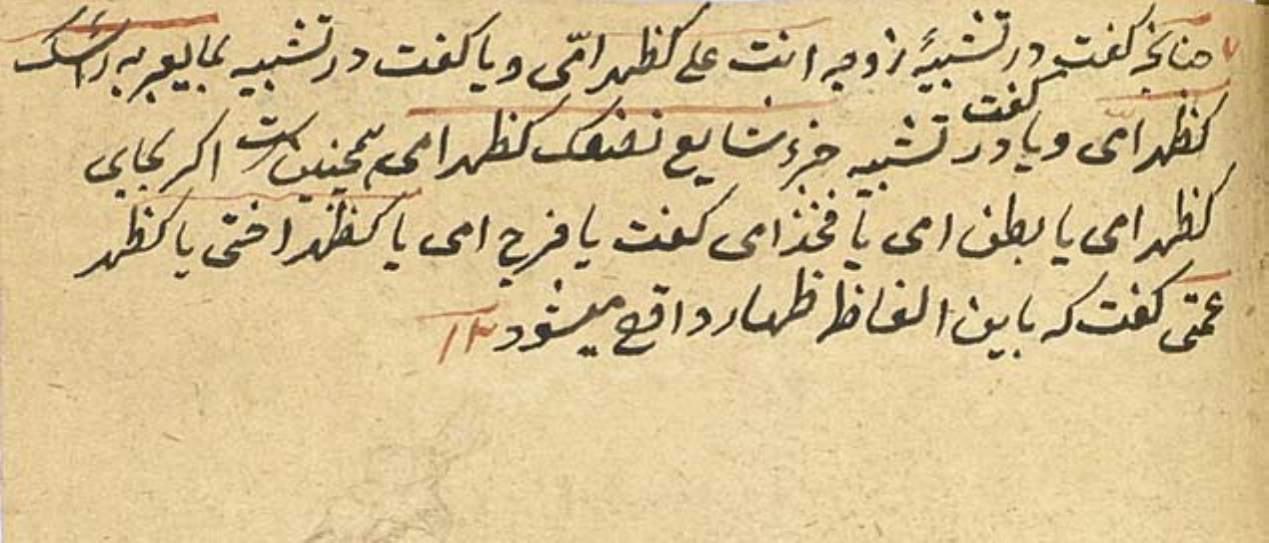 ۷ چنانچه کفت در تشبیهٔ زوجه انت علی کظهر امّی و یا کفت در تشبیه بما یعبر به راسک
کظهر امی و یا در کفت تشبیه جزء شایع نصفک کظهر امی همچنین است اکر بجای
کظهر امی یا بطن امی یا فخذ امی کفت یا فرج امی یا کظهر اختی یا کظهر
عمتی کفت که باین الفاظ ظهار واقع میشود ۱۲